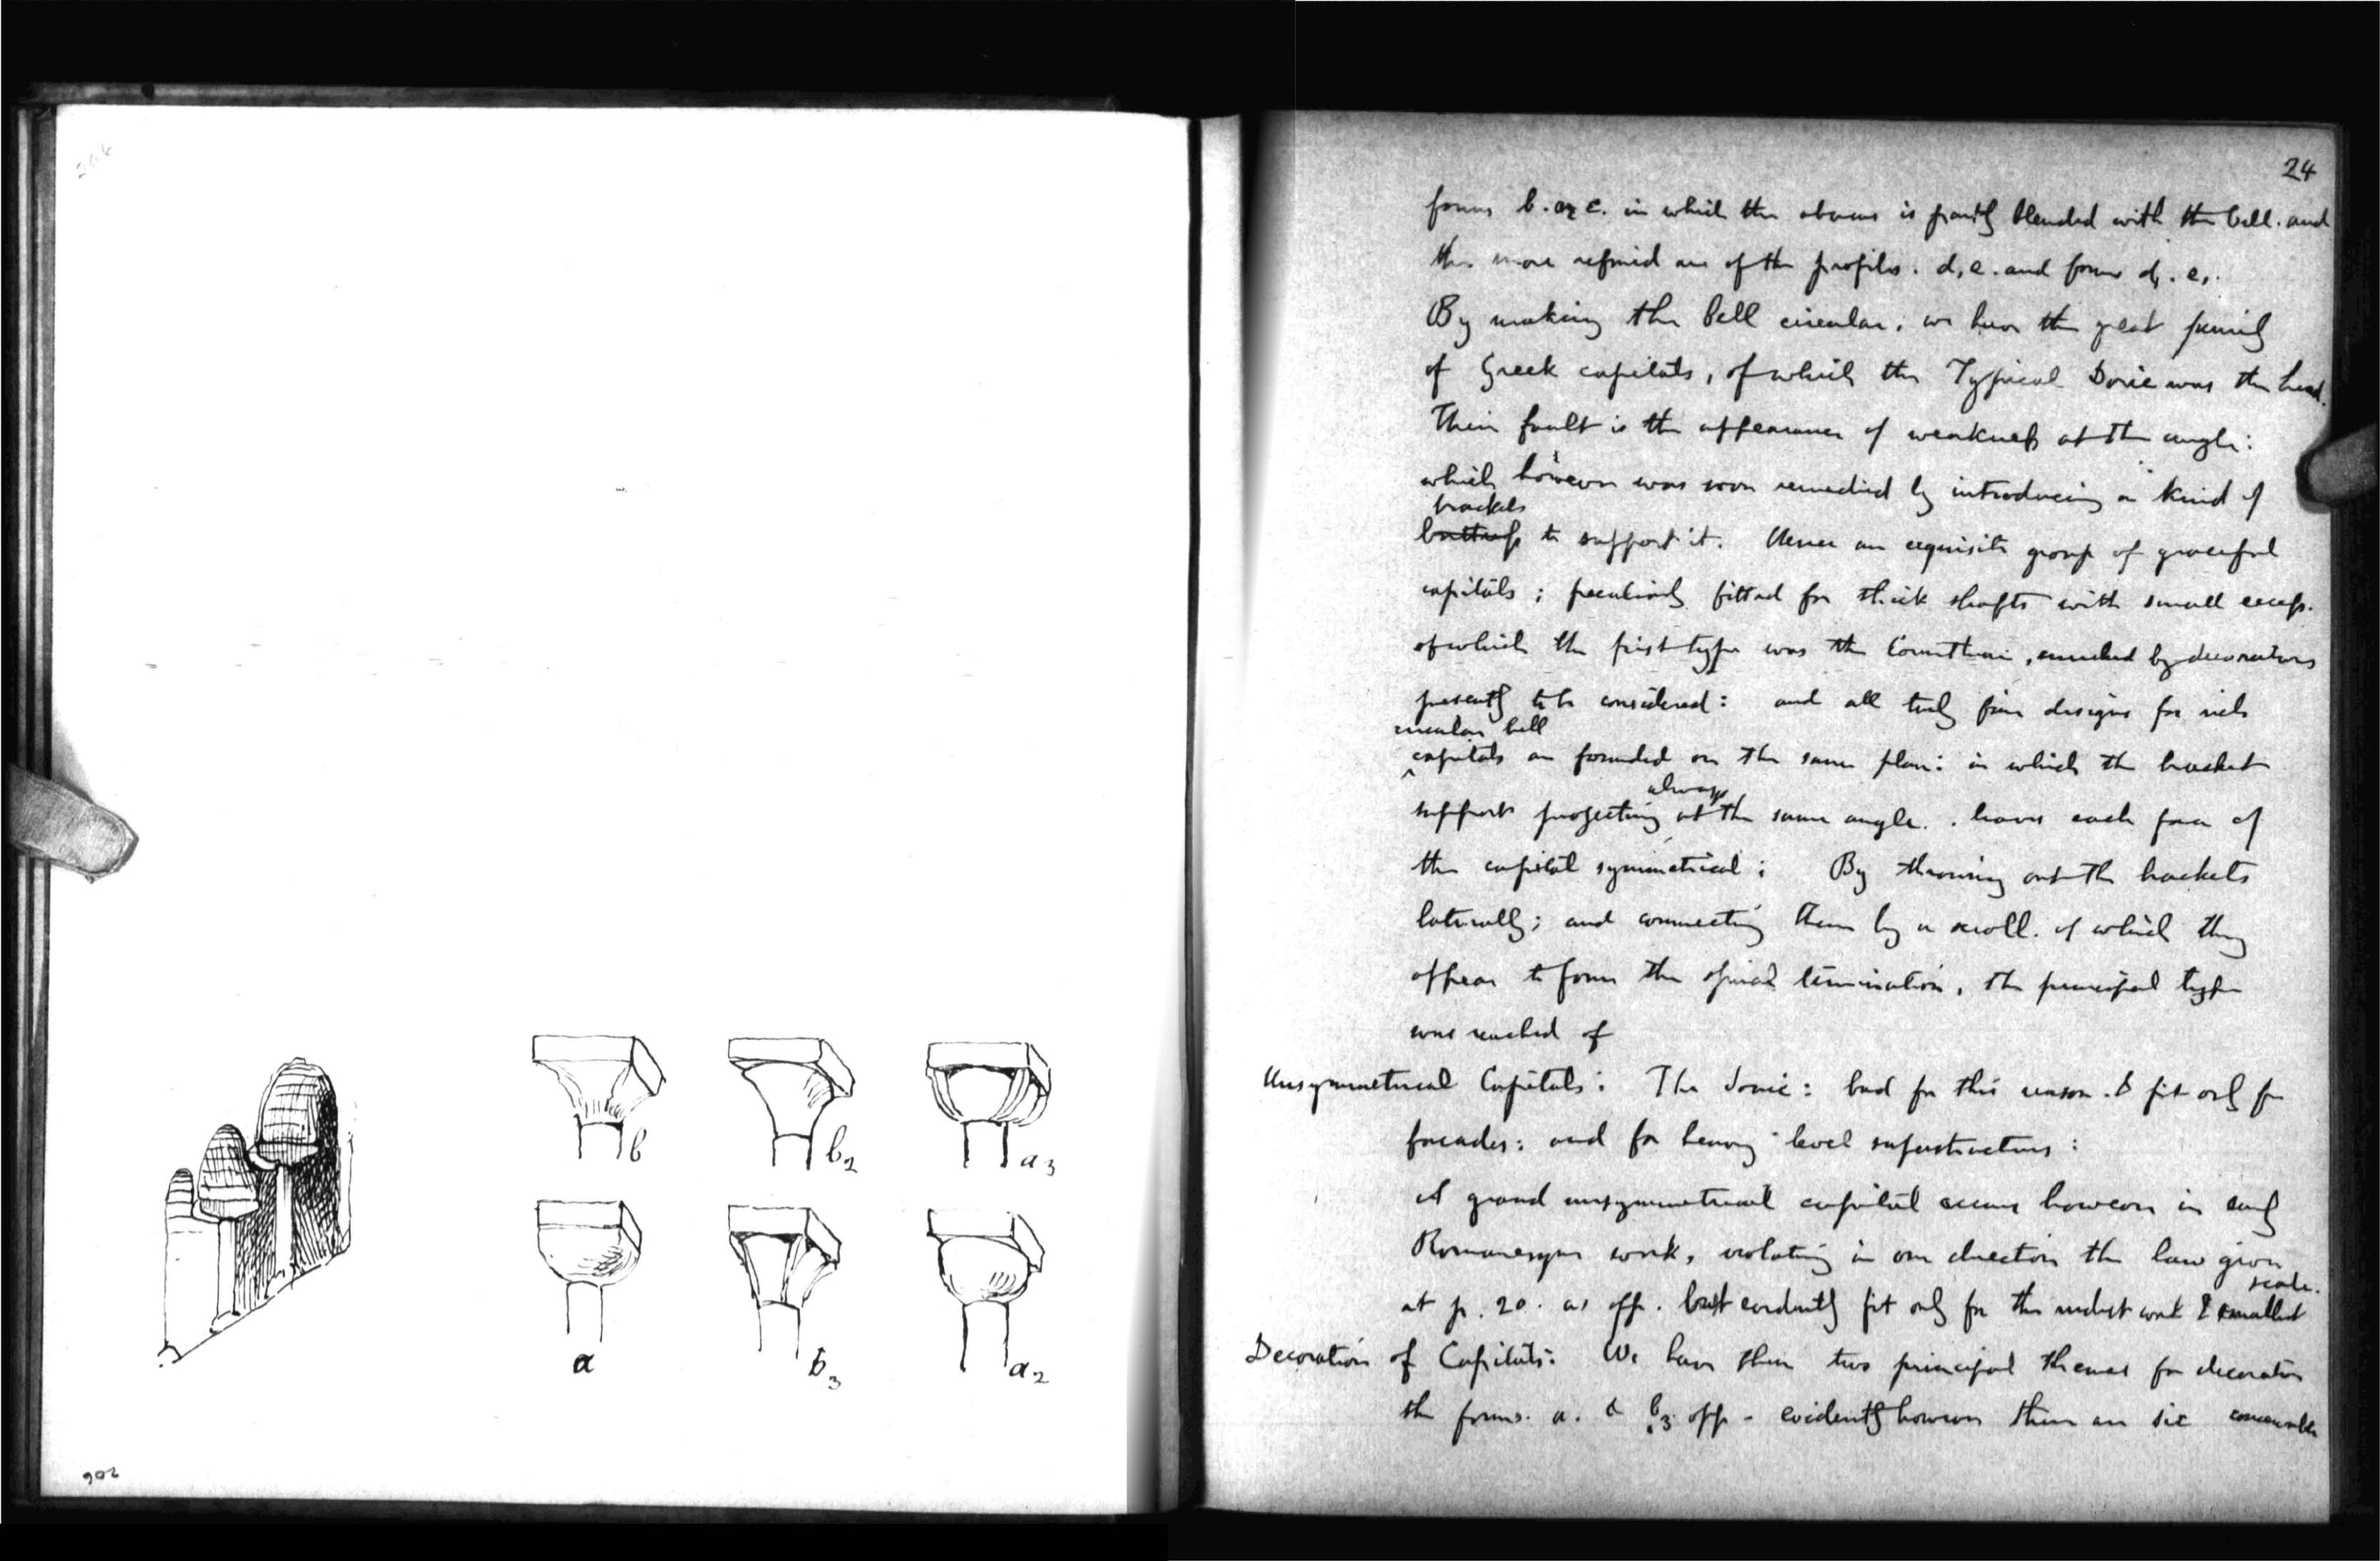 206
b
b2
a3
a
b3
a2
902
24
forms b. or c. in which the abacus is partly blended with the bell. and
the more refined use of the profiles. d, e. and forms d,. e,.
By making the bell circular; we have the great family
of Greek capitals, of which the Typical Doric was the head.
Their fault is the appearance of weakness at the angle:
which however was soon remedied by introducing a kind of
brackets
buttress to support it. Hence an exquisite group of graceful
capitals; peculiarly fitted for thick shafts with small
of which the first type was the Corinthian, enriched by decorations
presently to be considered: and all truly fine designs for rich
circular bell
capitals are founded on the same plan: in which the bracket
always
support projecting at the same angle. . leaves each face of
the capital symmetrical; By throwing out the brackets
laterally; and connecting them by a scroll. of which they
appear to form the spiral termination, the principal type
was reached of
Unsymmetrical Capitals: The Ionic: bad for this reason. & fit only for
facades: and for heavy level superstructures:
A grand unsymmetrical capital occurs however in early
Romanesque work, violating in one direction the law given
scale.
at p. 20. as opp. but evidently fit only for the rudest work & smallest
Decoration of Capitals: We have then two principal themes for decoration
the forms. a. & b3. opp - evidently however there are six conceivable